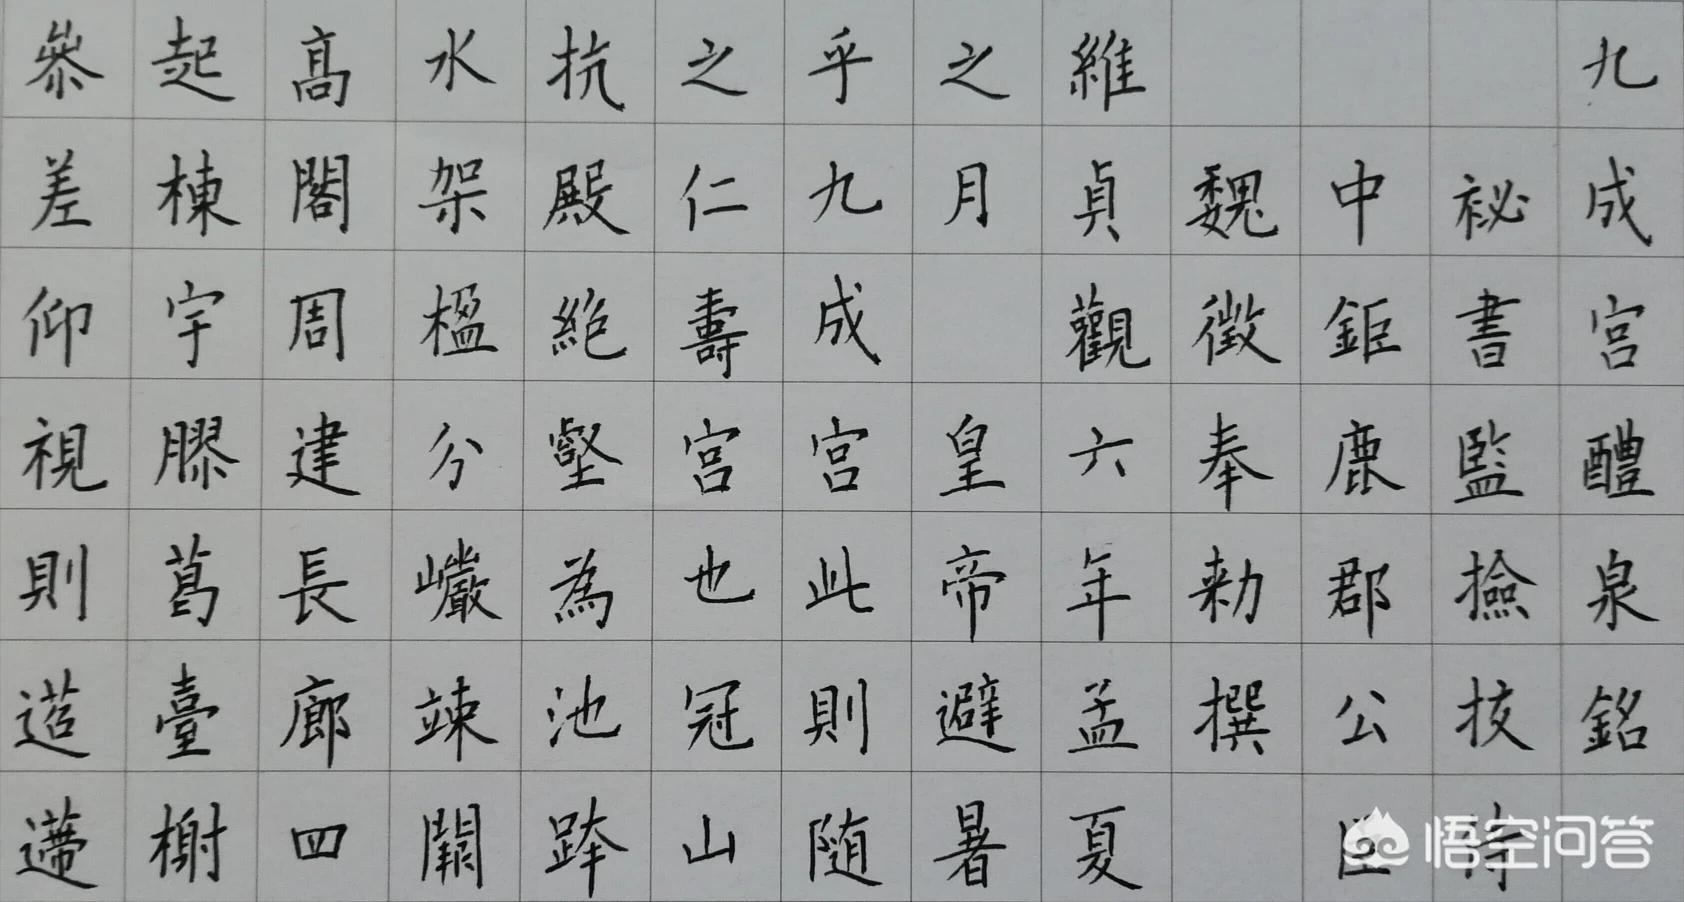 九成宫醴泉銘
祕書監撿挍侍
中鉅鹿郡公臣
魏徵奉勑撰
維貞觀六年孟夏
之月 皇帝避暑
乎九成宫此則随
之仁壽宫也冠山
抗殿絶壑為池跨
水架楹分巗竦闕
髙閣周建長廊四
起棟宇膠葛臺榭
叅差仰視則迢遰
悟空问答